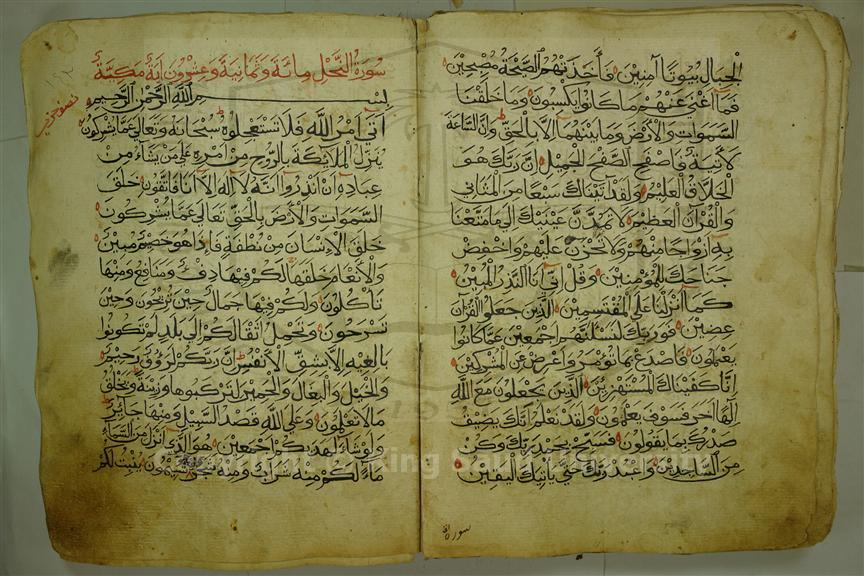 الجبال بيوتا آمنين فأخذتهم الصيحة مصبحين
فما اغنى عنهم ما كانوا يكسبون وما خلقنا
السموات والأرض وما بينهما الا بالحق وان الساعة
لآتية فاصفح الصفح الجميل ان ربك هو
الخلاق العليم ولقد آتيناك سبعا من المثاني
والقرآن العظيم لا تمدن عينيك الى ما متعنا
به ازواجا منهم ولا تحزن عليهم واخفض
جناحك للمؤمنين وقل اني انا النذير المبين
كما انزلنا على المقتسمين الذين جعلوا القرآن
عضين فوربك لنسئلنهم اجمعين عما كانوا
يعملون فاصدع بما تؤمر واعرض عن المشركين
انا كفيناك المستهزئين الذين يجعلون مع الله
الها آخر فسوف يعلمون ولقد نعلم انك يضيق
صدرك بما يقولون فسبح بحمد ربك وكن
من الساجدين واعبد ربك حتى يأتيك اليقين
سورة
سورة النحل مائة وثمانية وعشرون آية مكية
بسم الله الرحمن الرحيم
أتى امر الله فلا تستعجلوه سبحانه وتعالى عما يشركون
ينزل الملائكة بالروح من امره على من يشاء من
عباده ان انذروا انه لا اله الا انا فاتقون خلق
السموات والأرض بالحق تعالى عما يشركون
خلق الانسان من نطفة فاذا هو خصيم مبين
والانعام خلقها لكم فيها دفء ومنافع ومنها
تاكلون ولكم فيها جمال حين تريحون وحين
تسرحون وتحمل اثقالكم الى بلد لم تكونوا
بالغيه الا بشق الانفس ان ربكم لرؤف رحيم
والخيل والبغال والحمير لتركبوها وزينة ويخلق
ما لا تعلمون وعلى الله قصد السبيل ومنها جائر
ولو شاء لهديكم اجمعين هو الذي انزل من السماء
ماء لكم منه شراب ومنه شجر فيه تسيمون ينبت لكم